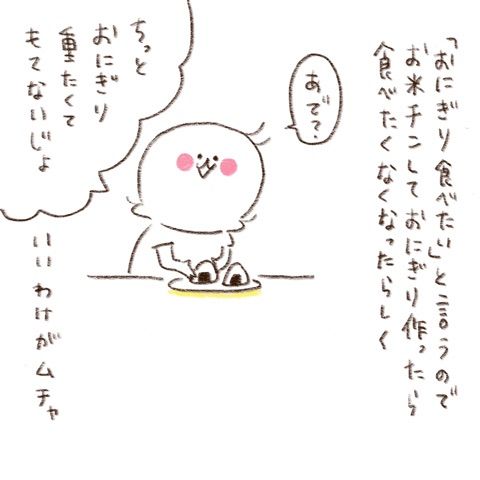 「おにぎり食べたい」と言うので
お米チンしておにぎり作ったら
食べたくなくなったらしく
あで?
ちょっと
おにぎり
重たくて
もてないじょ
いいわけがムチャ